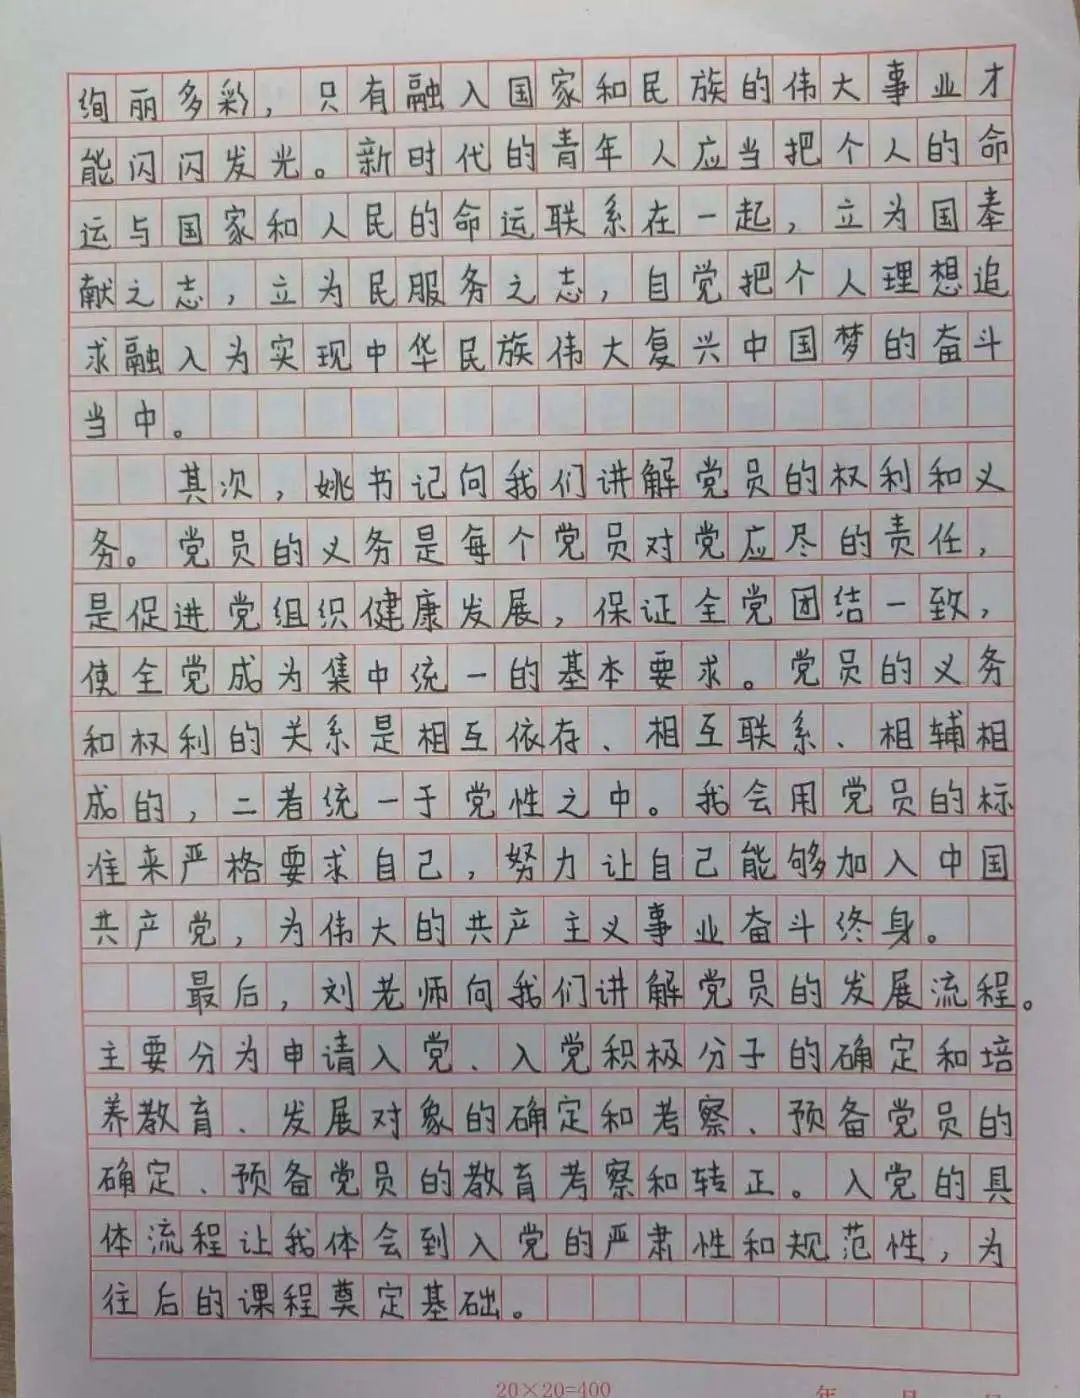 绚丽多彩，只有融入国家和民族的伟大事业才
能闪闪发光。新时代的青年人应当把个人的命
运与国家和人民的命运联系在一起，立为国奉
献之志，立为民服务之志，自党把个人理想追
求融入为实现中华民族伟大复兴中国梦的奋斗
当中。
其次，姚书记向我们讲解党员的权利和义
务。党员的义务是每个党员对党应尽的责任，
是促进党组织健康发展，保证全党团结一致，
使全党成为集中统一的基本要求。党员的义务
和权利的关系是相互依存、相互联系、相辅相
成的，二者统一于党性之中。我会用党员的标
准来严格要求自己，努力让自己能够加入中国
共产党，为伟大的共产主义事业奋斗终身。
最后，刘老师向我们讲解党员的发展流程。
主要分为申请入党、入党积极分子的确定和培
养教育、发展对象的确定和考察、预备党员的
确定、预备党员的教育考察和转正。入党的具
体流程让我体会到入党的严肃性和规范性，为
往后的课程奠定基础。
20×20=400
年 月